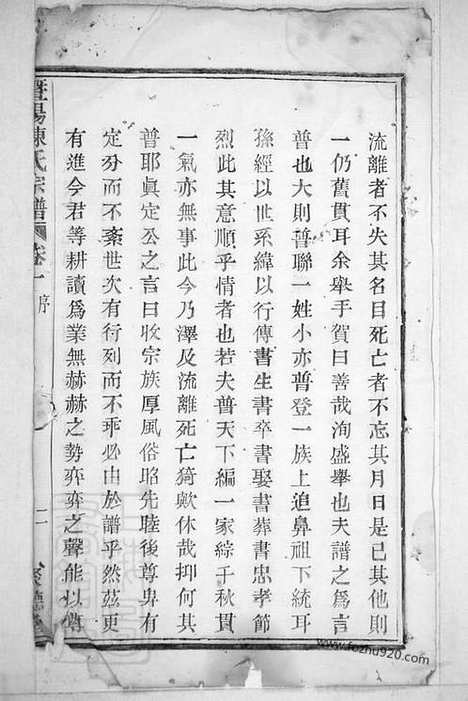 流離者不失其名目死亡者不忘其月日是已其他則
一仍舊貫耳余舉手賀曰善哉洵盛舉也夫譜之爲言
普也大則普聯一姓小亦普登一族上追鼻祖下統耳
孫經以世系緯以行傳書生書卒書娶書葬書忠孝節
烈此其意順乎情者也若夫普天下編一家綜千秋貫
一氣亦無事此今乃澤及流離死亡猗歟休哉抑何其
普耶眞定公之言曰收宗族厚風俗昭先陸後尊卑有
定分而不紊世次有行列而不乖必由於譜乎然茲更
有進今君等耕讀爲業無赫赫之勢弈弈之聲能以傳
暨陽陳氏宗譜 卷一 序 二
www.fozhu920.com